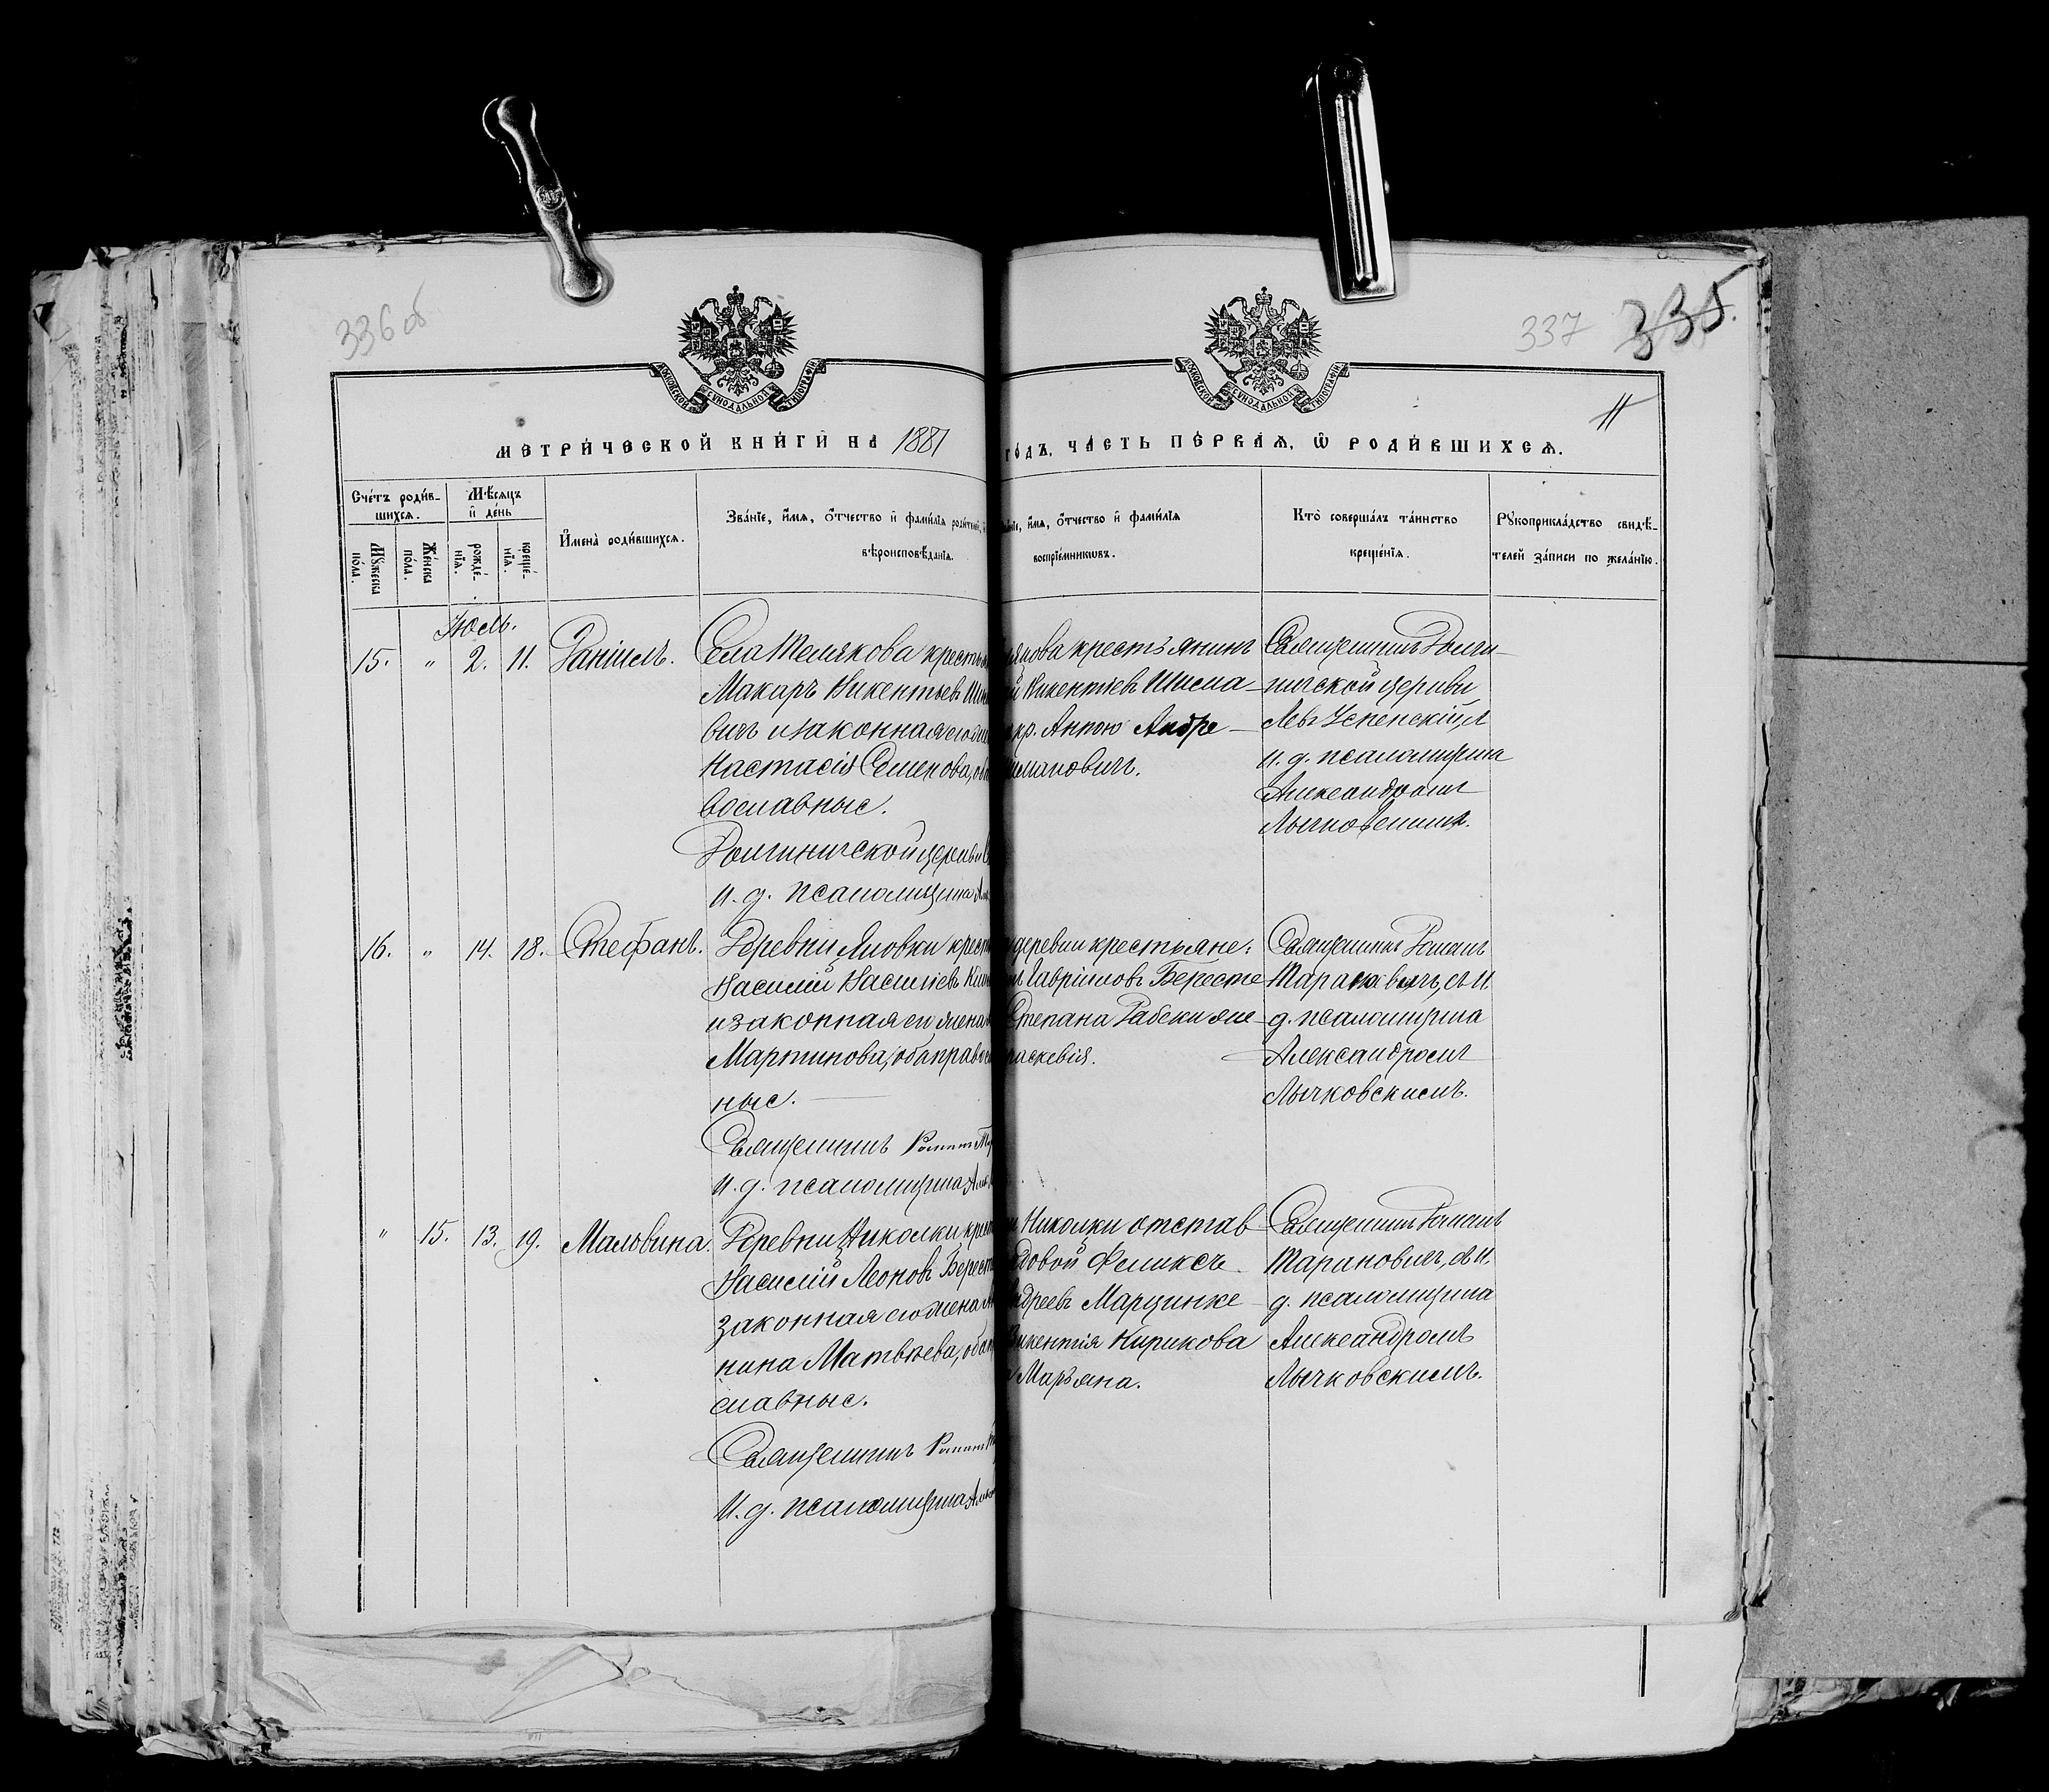 336 об
337
335.
11
МОСКОВСКОЙ СѴНОДАЛЬНОЙ ТИПОГРАФІИ
МОСКОВСКОЙ СѴНОДАЛЬНОЙ ТИПОГРАФІИ
МЕТРИ́ЧЕСКОЙ КНИ́ГИ НА 1881
ГО́ДЪ, ЧА́СТЬ ПЕ́РВАѦ, Ѿ РОДИ́ВШИХСѦ.
Сче́тъ роди́в-
шихсѧ.
Мѣ́сѧцъ
и҆ де́нь
Мꙋ́жеска по́ла.
Же́нска по́ла.
рожде́-
нїѧ.
креще́-
нїѧ.
И҆мена̀ роди́вшихсѧ.
Зва́нїе, и҆́мѧ, ѻ҆́тчество и҆ фами́лїѧ роди́телей,
вѣроисповѣ́данїѧ.
и҆́мѧ, ѻ҆́тчество и҆ фами́лїѧ
воспрїе́мникѡвъ.
Кто̀ соверша́лъ та́инство
креще́нїѧ.
Рꙋкоприкла́дство свидѣ́-
телей за́писи по жела́нїю.
Іюль.
15. " 2. 11. Даніилъ.
Села Телякова кресть
Макаръ Викентьевъ Ши
вичъ и законная его же
Настасія Семенова, оба
вославные.
Долгиничской церкви
и. д. псаломщика Ал
якова крестьянинъ
Викентіевъ Шима
кр. Антою Андре
Шимановичъ.
Священникъ Долги-
ничской церкви
Левъ Успенскій,
и. д. псаломщика
Александромъ
Лычковскимъ.
16. " 14. 18. Стефанъ.
Деревни Яловки крест
Василій Васильевъ
и законная его жена
Мартинова, оба правос
ные.
Священникъ Романъ
И. д. псаломщика Ал
деревни крестьяне:
Гавріиловъ Бересте
Степана Рабеки же
раскевія.
Священникъ Романъ
Тарановичъ, съ и.
д. псаломщика
Александромъ
Лычковскимъ.
" 15. 13. 19. Мальвина.
Деревни Николки крест
Василій Леоновъ Берест
законная его жена
нина Матвѣева, оба п
славные.
Священникъ Романъ
И. д. псаломщика Ал
Николки отстав
довой Феликсъ
ндреевъ Марцинке
Викентія Кирикова
Марьяна.
Священникъ Романъ
Тарановичъ, съ и.
д. псаломщика
Александромъ
Лычковскимъ.